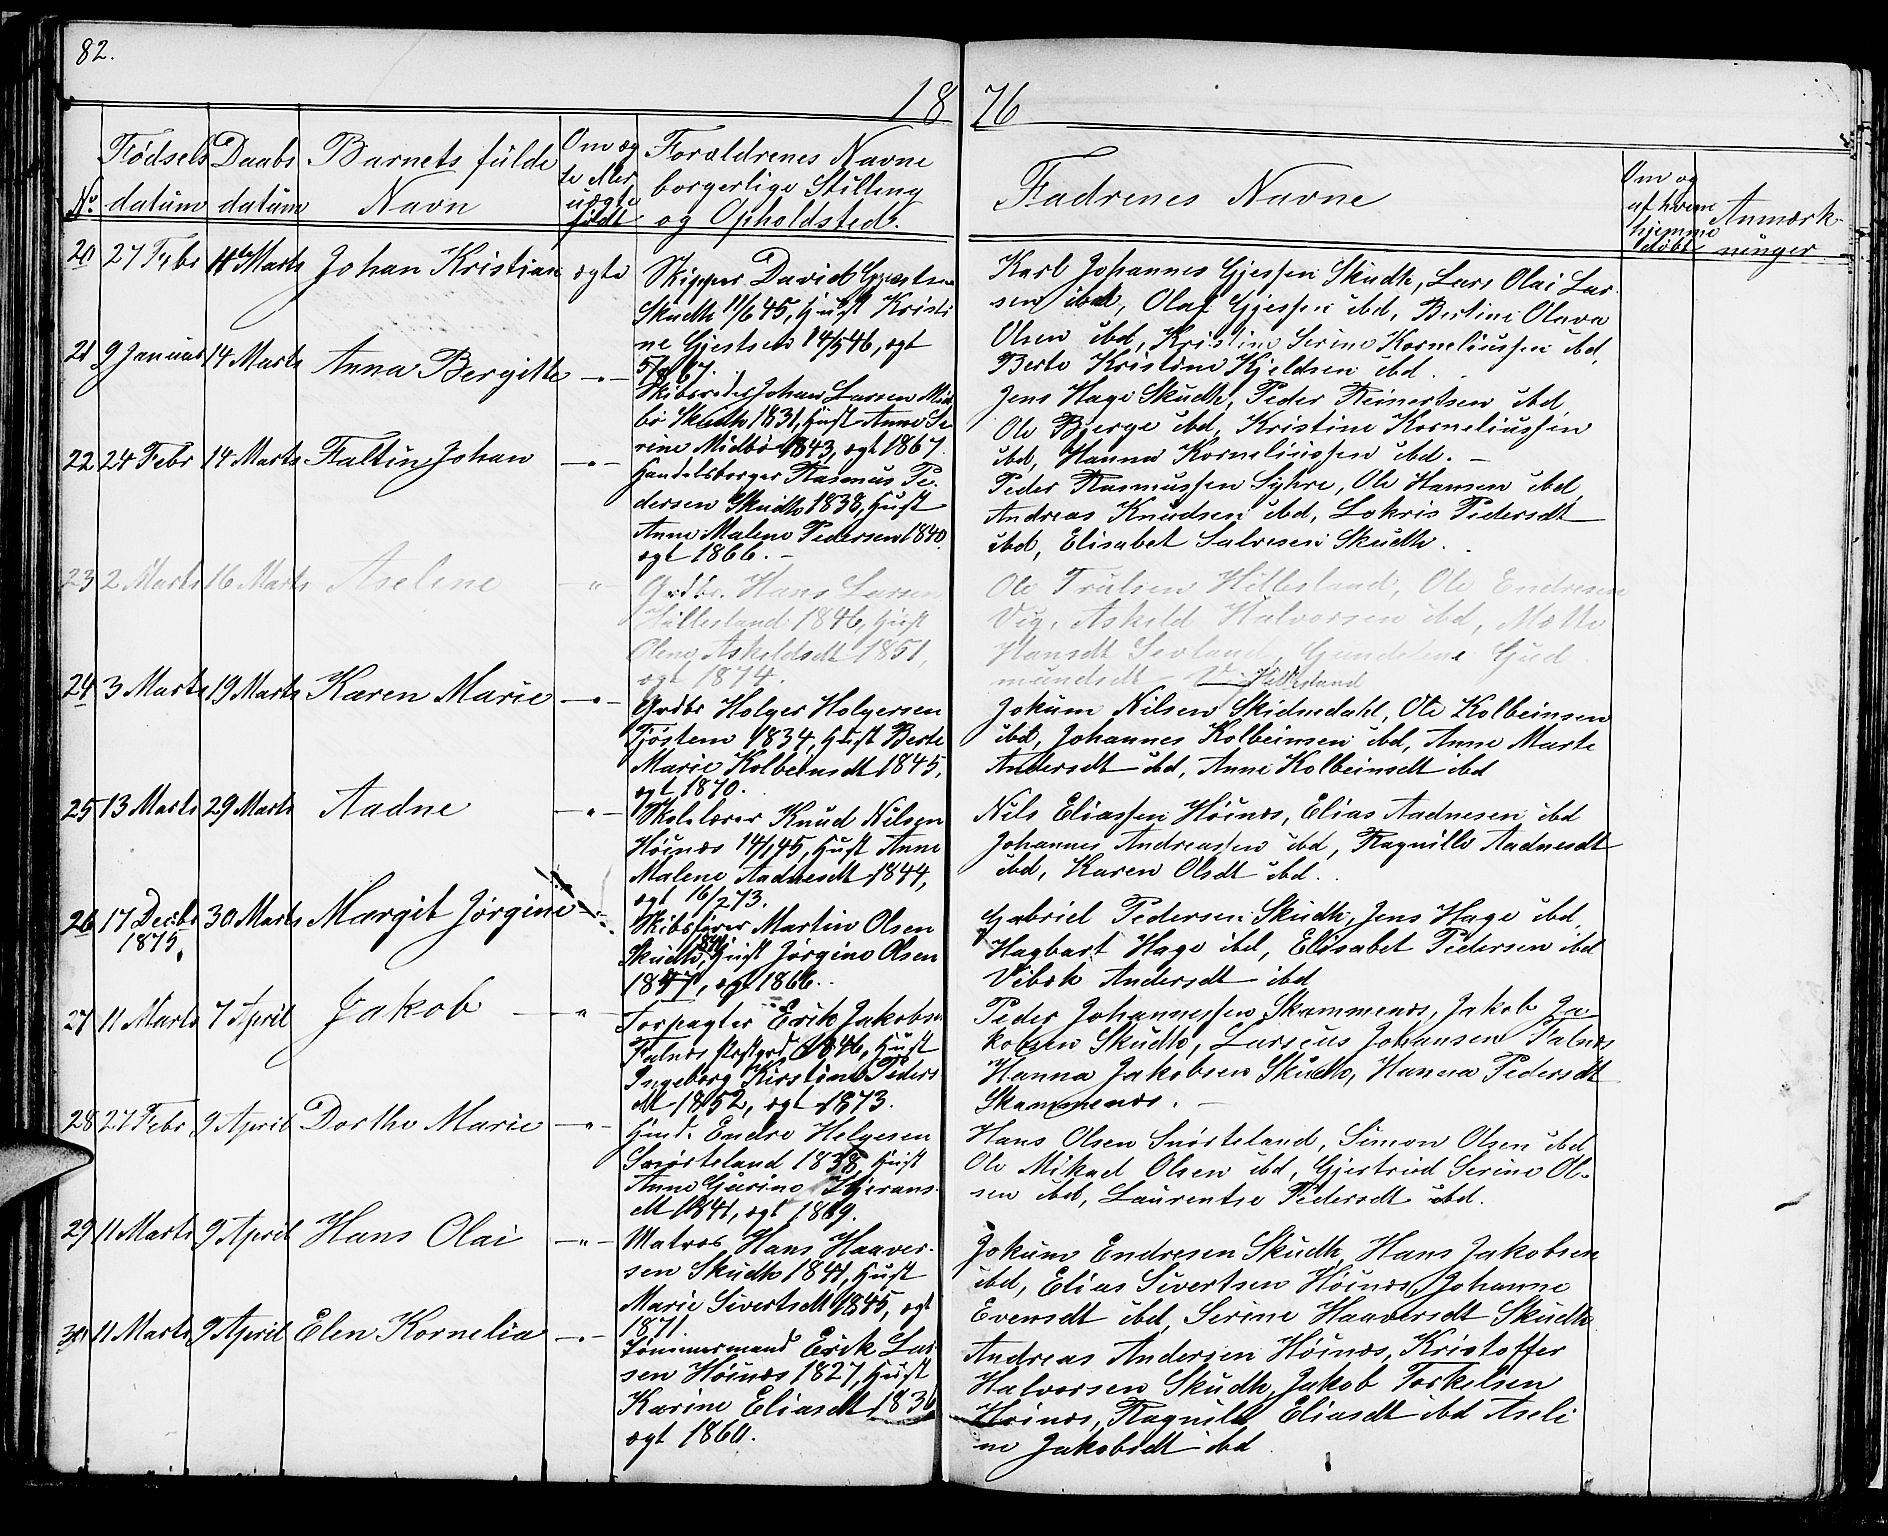 82.
18 76
No.
Fødsels
datum
Daabs
datum
Barnets fulde
Navn
Om æg
te eller
uægte
født
Forældrenes Navne
borgerlige Stilling
og Opholdsted.
Fadrenes Navne
Om og
af hvem
hjemme
døbt
Anmærk-
ninger
20 27 Febr Marts Johan Kristian ægte
Skipper David Gjertsen
Skudh 11/6 45, Hust Kristi
ne Gjertsen 14/5 46, ægt
67.
Karl Johannes Gjessen Skudh, Lars Olai Lar-
sen ibd, Olaf Gjessen ibd, Bertine Olava
Olsen ibd, Kristine Serine Korneliussen ibd,
Berte Kristine Kjeldsen ibd.
21 9 Januar 14 Marts Anna Bergitte -"-
Skibsreder Johan Larsen Mid
bø Skudh 1831, Hust Anne Se
rine Midbø 1843, ægt 1867.
Jens Hage Skudh, Peder Reinertsen ibd,
Ole Bjerge ibd, Kristine Korneliussen
ibd, Hanna Korneliussen ibd. -
22 24 Febr 14 Marts Faltin Johan -"-
Handelsborger Rasmus Pe-
dersen Skudh 1838, Hust
Anne Malene Pedersen 1840,
ægt 1866. -
Peder Rasmussen Syhre, Ole Hansen ibd,
Andreas Knudsen ibd, Lokris Pedersdt
ibd, Elisabet Salvesen Skudh.
23 2 Marts 16 Marts Aselene -"-
Grdbr. Hans Larsen
Hillesland 1846, Hust
Olene Askeldsdt 1851,
ægt 1874.
Ole Trulsen Hillesland, Ole Endresen
Vig, Askeld Halvorsen ibd, Mette
Hansdt Sevland, Gundeline Gud
mundsdt Hillesland
24 3 Marts 19 Marts Karen Marie -"-
Grdbr Holger Holgersen
Tjøstem 1834, Hust Berte
Marie Kolbeinsdt 1845,
ægt 1870.
Jokum Nilsen Skidmdahl, Ole Kolbeinsen
ibd, Johannes Kolbeinsen ibd, Anne Marte
Andersdt ibd, Anne Kolbeinsdt ibd
25 13 Marts 29 Marts Aadne -"-
Skolelærer Knud Nilsen
Høinæs 14/1 45, Hust Anne
Malene Aadnesdt 1844,
ægt 16/2 73.
Nils Eliassen Høinæs, Elias Aadnesen ibd
Johannes Andreassen ibd, Ragnille Aadnesdt
ibd, Karen Olsdt ibd.
26 17 Decbr 30 Marts Margit Jørgine -"-
1875.
Skibsfører Martin Olsen
Skudh, Hust Jørgine Olsen
1847, ægt 1866.
Gabriel Pedersen Skudh, Jens Hage ibd,
Hagbart Hage ibd, Elisabet Pedersen ibd
Vibek Andersdt ibd
27 11 Marts 7 April Jakob -"-
Forpagter Erik Jakobsen
Falnæs Prstgrd 1846, Hust
Ingeborg Kirstine Peders
dt 1852, ægt 1873.
Peder Johannessen Skammenæs, Jakob Ja-
kobsen Skudh, Larsius Johansen Falnæs
Hanna Jakobsen Skudh, Hanna Pedersdt
Skammenæs. -
28 27 Febr 9 April Dorthe Marie -"-
Hmd. Endre Helgesen
Snørteland 1838, Hust
Anne Gurine Thjerans-
dt 1841, ægt 1869.
Hans Olsen Snørteland, Simon Olsen ibd
Ole Mikael Olsen ibd, Gjertrud Serine Ol-
sen ibd, Laurentse Pedersdt ibd.
29 11 Marts 9 April Hans Olai -"-
Matros Hans Haaver-
sen Skudh 1841, Hust
Marie Sivertsdt 1845, ægt
1871.
Jokum Endresen Skudh, Hans Jakobsen
ibd, Elias Sivertsen Høinæs, Johanne
Evensdt ibd, Serine Haaversdt Skudh
30 11 Marts 9 April Elen Kornelia -"-
Tømmermand Erik Lar
sen Høinæs 1827, Hust
Karine Eliasdt 1836
ægt 1860.
Andreas Andersen Høinæs, Kristoffer
Halvorsen Skudh, Jakob Torkelsen
Høinæs, Ragnile Eliasdt ibd Aseli
ne Jakobsdt ibd